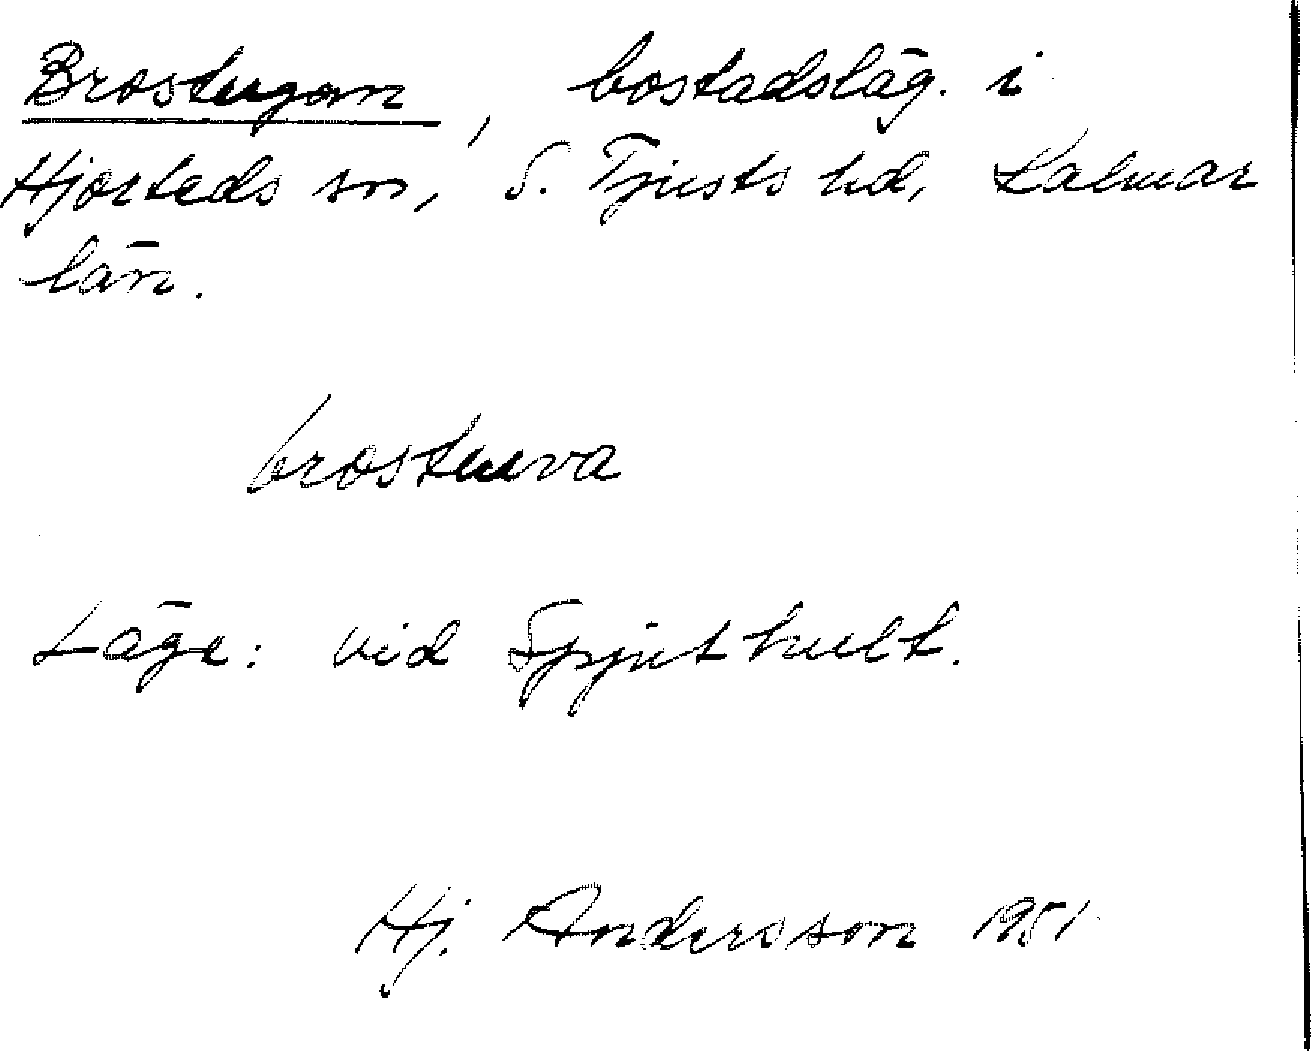 Brostugan, bostadsläg. i
Hjorteds sn, S. Tjusts hd, Kalmar
län.
brostuva
Läge: vid Spjuthult.
Hj. Andersson 1951